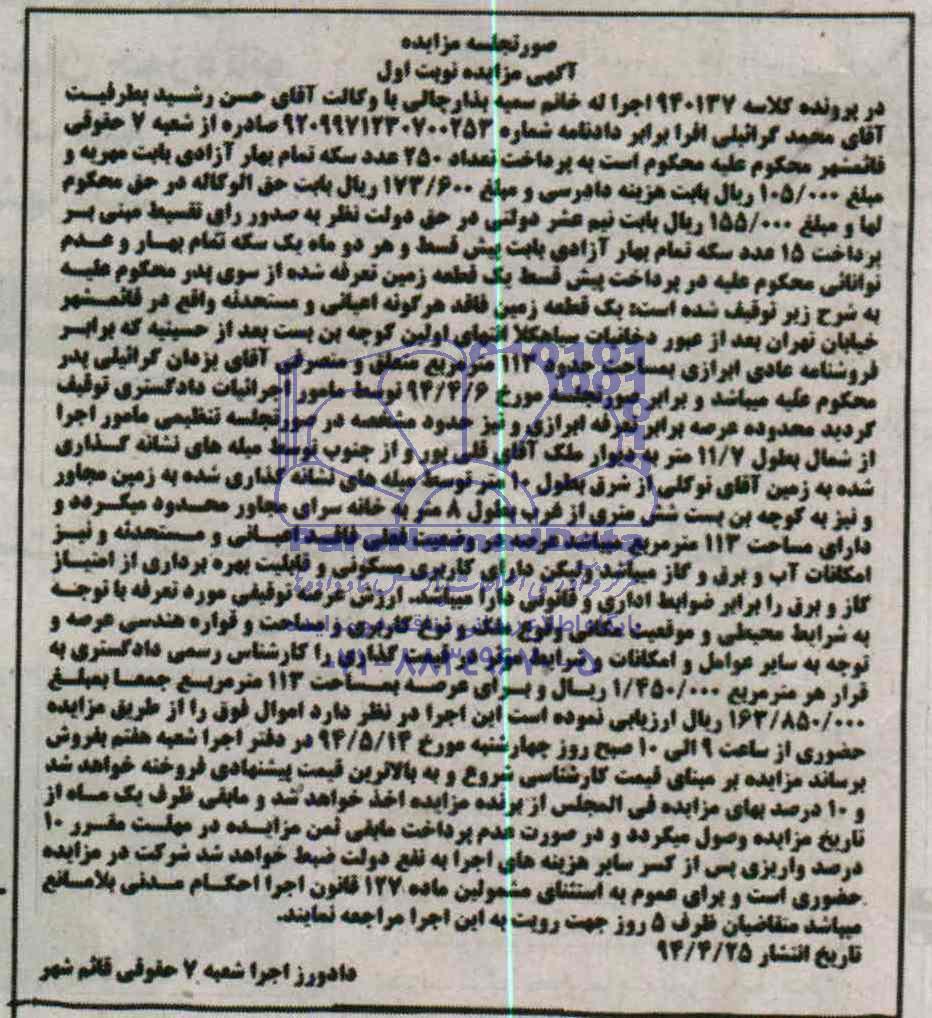 صورتجلسه مزایده
آگهی مزایده نوبت اول
در پرونده کلاسه ۹۴۰۱۳۷ اجرا له خانم سمیه بذارچالی با وکالت آقای حسن رشید بطرفیت
آقای محمد گرائیلی افرا برابر دادنامه شماره ۹۲۰۹۹۷۱۲۳۰۷۰۰۲۵۳ صادره از شعبه ۷ حقوقی
قائمشهر محکوم علیه محکوم است به پرداخت تعداد ۲۵۰ عدد سکه تمام بهار آزادی بابت مهریه و
مبلغ ۱۰۵/۰۰۰ ریال بابت هزینه دادرسی و مبلغ ۱۷۳/۶۰۰ ریال بابت حق الوکاله در حق محکوم
لها و مبلغ ۱۵۵/۰۰۰ ریال بابت نیم عشر دولتی در حق دولت نظر به صدور رای تقسیط مبنی بر
پرداخت ۱۵ عدد سکه تمام بهار آزادی بابت پیش قسط و هر دو ماه یک سکه تمام بهار و عدم
توانائی محکوم علیه در پرداخت پیش قسط یک قطعه زمین تعرفه شده از سوی پدر محکوم علیه
به شرح زیر توقیف شده است: یک قطعه زمین فاقد هرگونه اعیانی و مستحدثه واقع در قائمشهر
خیابان تهران بعد از عبور دخانیات سیاهکلا انتهای اولین کوچه بن بست بعد از حسینیه که برابر
فروشنامه عادی ابرازی بمساحت حدود ۱۱۲ مترمربع متعلق و متصرفی آقای یزدان گرائیلی پدر
محکوم علیه میباشد و برابر صورتجلسه مورخ ۹۴/۴/۶ توسط مامور اجرائیات دادگستری توقیف
گردید محدوده عرصه برابر تعرفه ابرازی و نیز حدود مشخصه در صورتجلسه تنظیمی مامور اجرا
از شمال بطول ۱۱/۷ متر به دیوار ملک آقای قلی پور و از جنوب توسط میله های نشانه گذاری
شده به زمین آقای توکلی از شرق بطول ۱۰ متر توسط میله های نشانه گذاری شده به زمین مجاور
و نیز به کوچه بن بست شش متری از غرب بطول ۸ متر به خانه سرای مجاور محدود میگردد و
دارای مساحت ۱۱۳ مترمربع میباشد عرصه در وضعیت فعلی فاقد اعیانی و مستحدثه و نیز
امکانات آب و برق و گاز میباشد ولیکن دارای کاربری مسکونی و قابلیت بهره برداری از امتیاز
گاز و برق را برابر ضوابط اداری و قانونی دارا میباشد. ارزش عرصه توقیفی مورد تعرفه با توجه
به شرایط محیطی و موقعیت مکانی ونوع ملک و نوع کاربری و مساحت و قواره هندسی عرصه و
توجه به سایر عوامل و امکانات و شرایط موثر در قیمت گذاری را کارشناس رسمی دادگستری به
قرار هر مترمربع ۱/۴۵۰/۰۰۰ ریال و برای عرصه بمساحت ۱۱۳ مترمربع جمعا بمبلغ
۱۶۳/۸۵۰/۰۰۰ ریال ارزیابی نموده است این اجرا در نظر دارد اموال فوق را از طریق مزایده
حضوری از ساعت ۹ الی ۱۰ صبح روز چهارشنبه مورخ ۹۴/۵/۱۴ در دفتر اجرا شعبه هفتم بفروش
برساند مزایده بر مبنای قیمت کارشناسی شروع و به بالاترین قیمت پیشنهادی فروخته خواهد شد
و ۱۰ درصد بهای مزایده فی المجلس از برنده مزایده اخذ خواهد شد و مابقی ظرف یک ماه از
تاریخ مزایده وصول میگردد و در صورت عدم پرداخت مابقی ثمن مزایده در مهلت مقرر ۱۰
درصد واریزی پس از کسر سایر هزینه های اجرا به نفع دولت ضبط خواهد شد شرکت در مزایده
حضوری است و برای عموم به استثنای مشمولین ماده ۱۲۷ قانون اجرا احکام مدنی بلامانع
میباشد متقاضیان ظرف ۵ روز جهت رویت به این اجرا مراجعه نمایند.
تاریخ انتشار ۹۴/۴/۲۵
دادورز اجرا شعبه ۷ حقوقی قائم شهر
ParsNamadData
۰۲۱-۸۸۳۴۹۶۷۰-۵